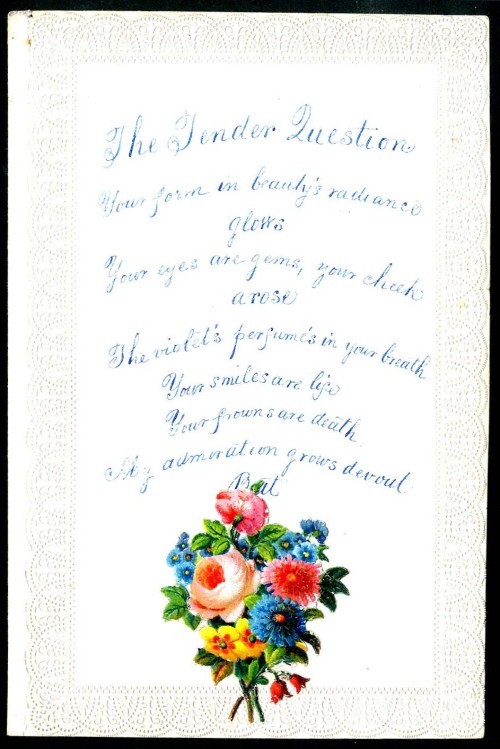 The Tender Question
Your form in beauty's radiance
glows
Your eyes are gems, your cheek
a rose
The violet's perfume's in your breath
Your smiles are life
Your frowns are death
My admiration grows devout
But